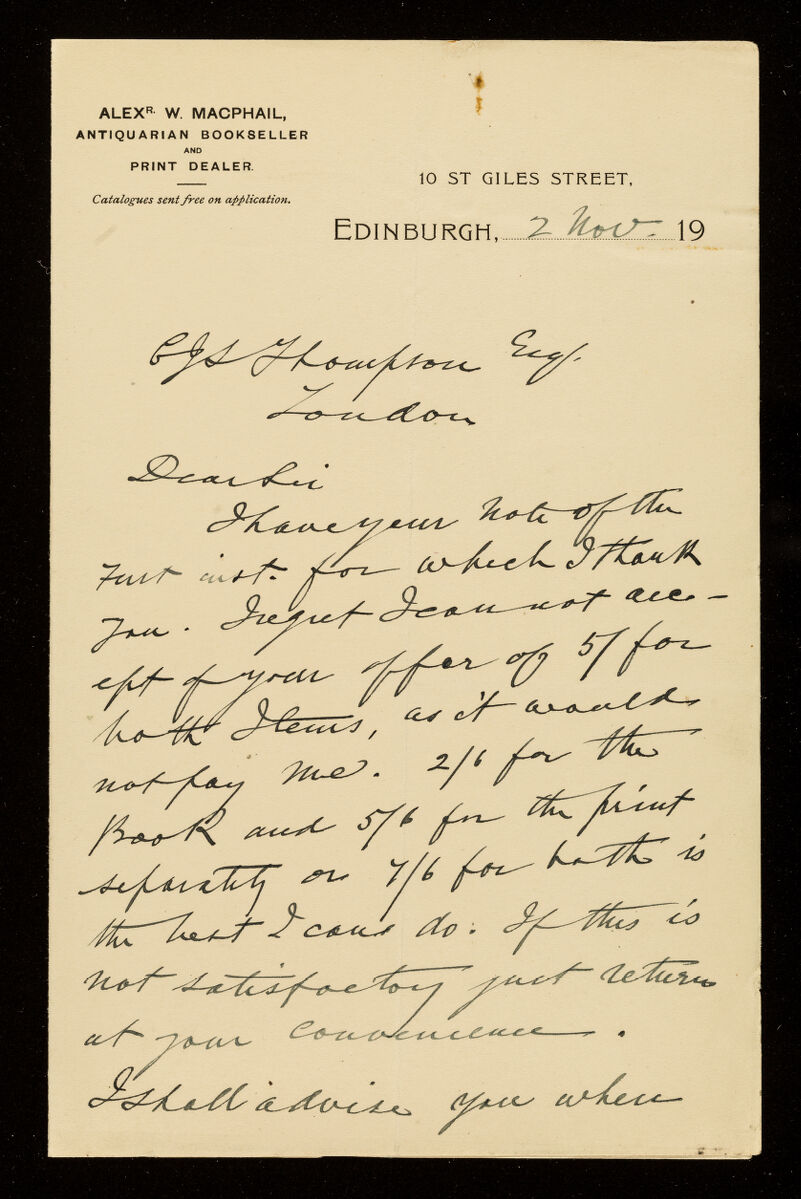 ALEXR. W. MACPHAIL,
ANTIQUARIAN BOOKSELLER
AND
PRINT DEALER.
Catalogues sent free on application.
10 ST GILES STREET,
EDINBURGH, 2 Nov. 19
CJS Thompson Esq.
London
Dear Sir
I have your note of the
inst. for which I thank
you. I regret I can not acc-
ept of your offer of 5/ for
both Items, as it would
not pay me. 2/6 for the
Book and 5/6 for the print
separately or 7/6 for both is
the best I can do. If this is
not satisfactory just return
at your convenience.
I shall advise you when